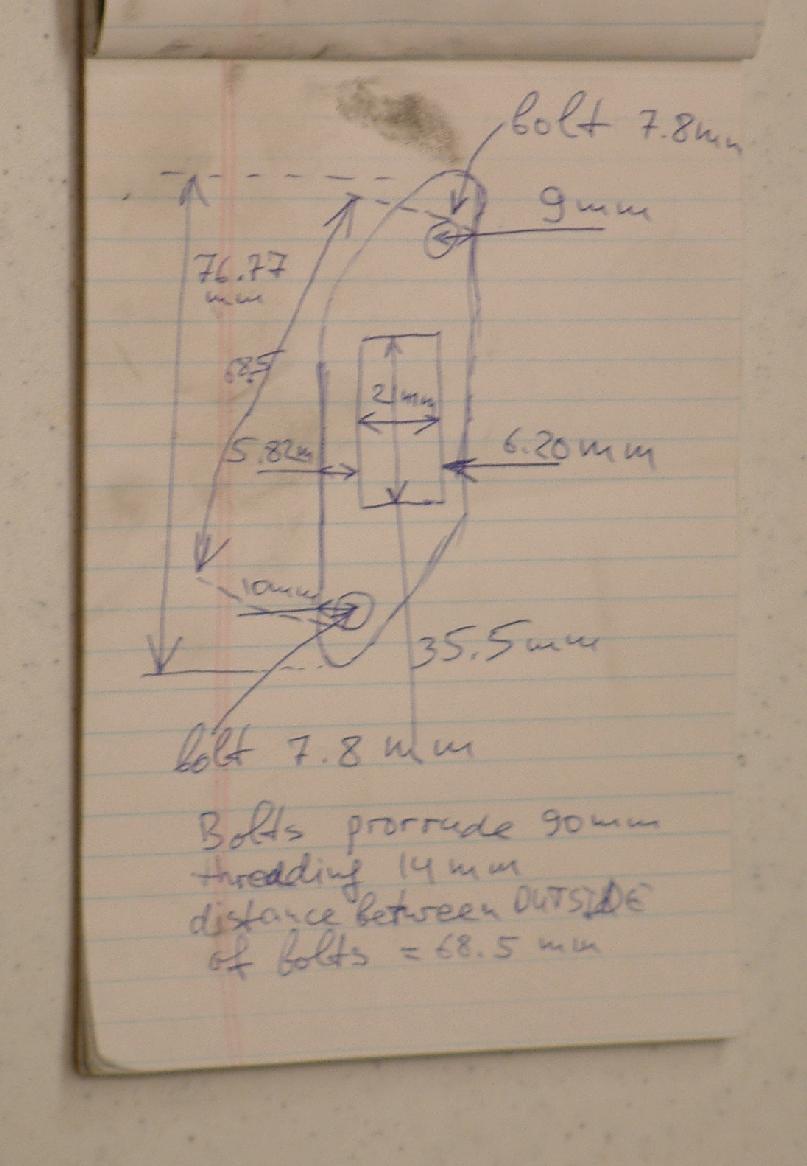 bolt 7.8mm
9mm
76.77
mm
68.5
2 mm
5.82m
6.20mm
10mm
35.5mm
bolt 7.8 mm
Bolts prorrude 90mm
threading 14mm
distance between OUTSIDE
of bolts = 68.5 mm